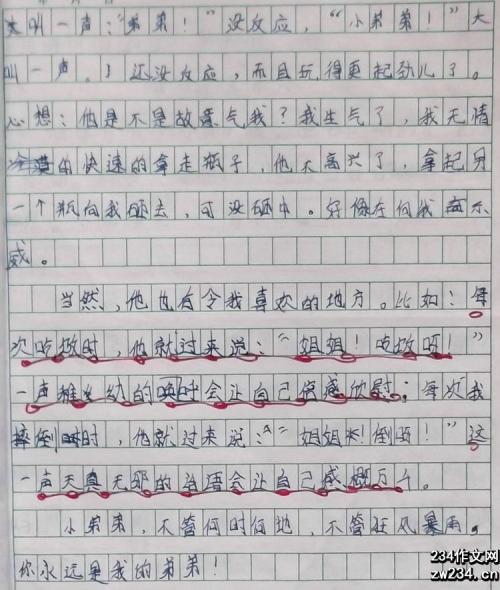 大叫一声:“弟弟!”没反应,“小弟弟!”大
叫一声。还没反应,而且玩得更起劲儿了。
心想:他是不是故意气我?我生气了,我无情
的快速的拿走瓶子,他不高兴了,拿起另
一个瓶向我砸去,可没砸中。好像在向我示
威。
当然,他也有令我喜欢的地方。比如:每
次吃饭时,他就过来说:“姐姐!吃饭呀!”
一声稚幼的唤时会让自己倍感欣慰;每次我
摔倒时,他就过来说:“姐姐倒呀!”这
一声天真无邪的话语会让自己感慨万千。
小弟弟,不管何时何地,不管狂风暴雨。
你永远是我的弟弟!
234作文网
zw234.cn